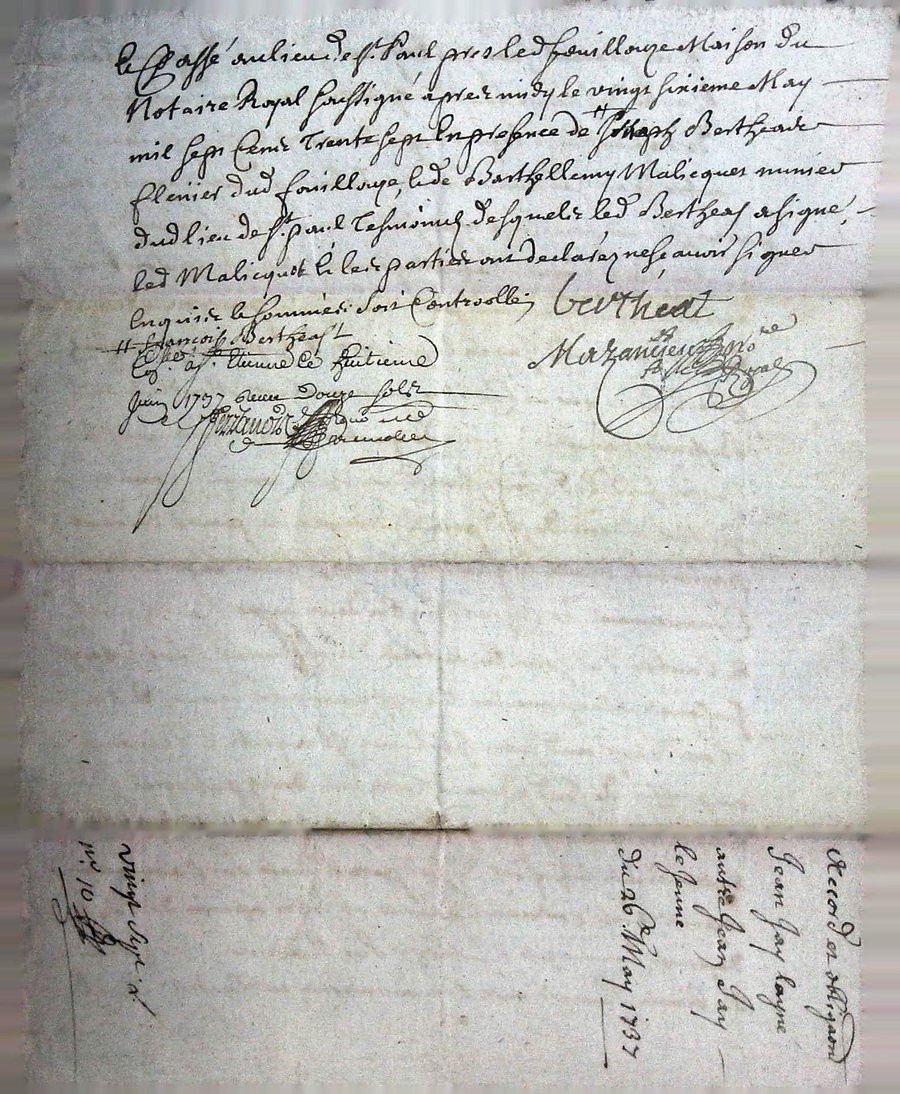 et Passé au lieu de St. Paul pres led fouillouze Maison du
Notaire Royal soussigné apres midy le vingt sixieme May
mil sept Cent Trente sept En presence de # Joseph Bertheas
dud fouillouze, et de Barthellemy Malicques munier
dud lieu de St. paul Tesmoins desquels led Bertheas a signé,
led Malicques et les parties ont declaréz ne scavoir signer
Enquis et sommés; Soit Controollé;
Bertheat
# françois Bertheast
Coné. a St. Etienne le huitieme
Juin 1737 Receu Douze sols
Mazancieu nore
Royal
Accord et obligaon
Jean Jay layné
autre Jean Jay
le Jeune
du 26e. May 1737
vingt sept
no. 10